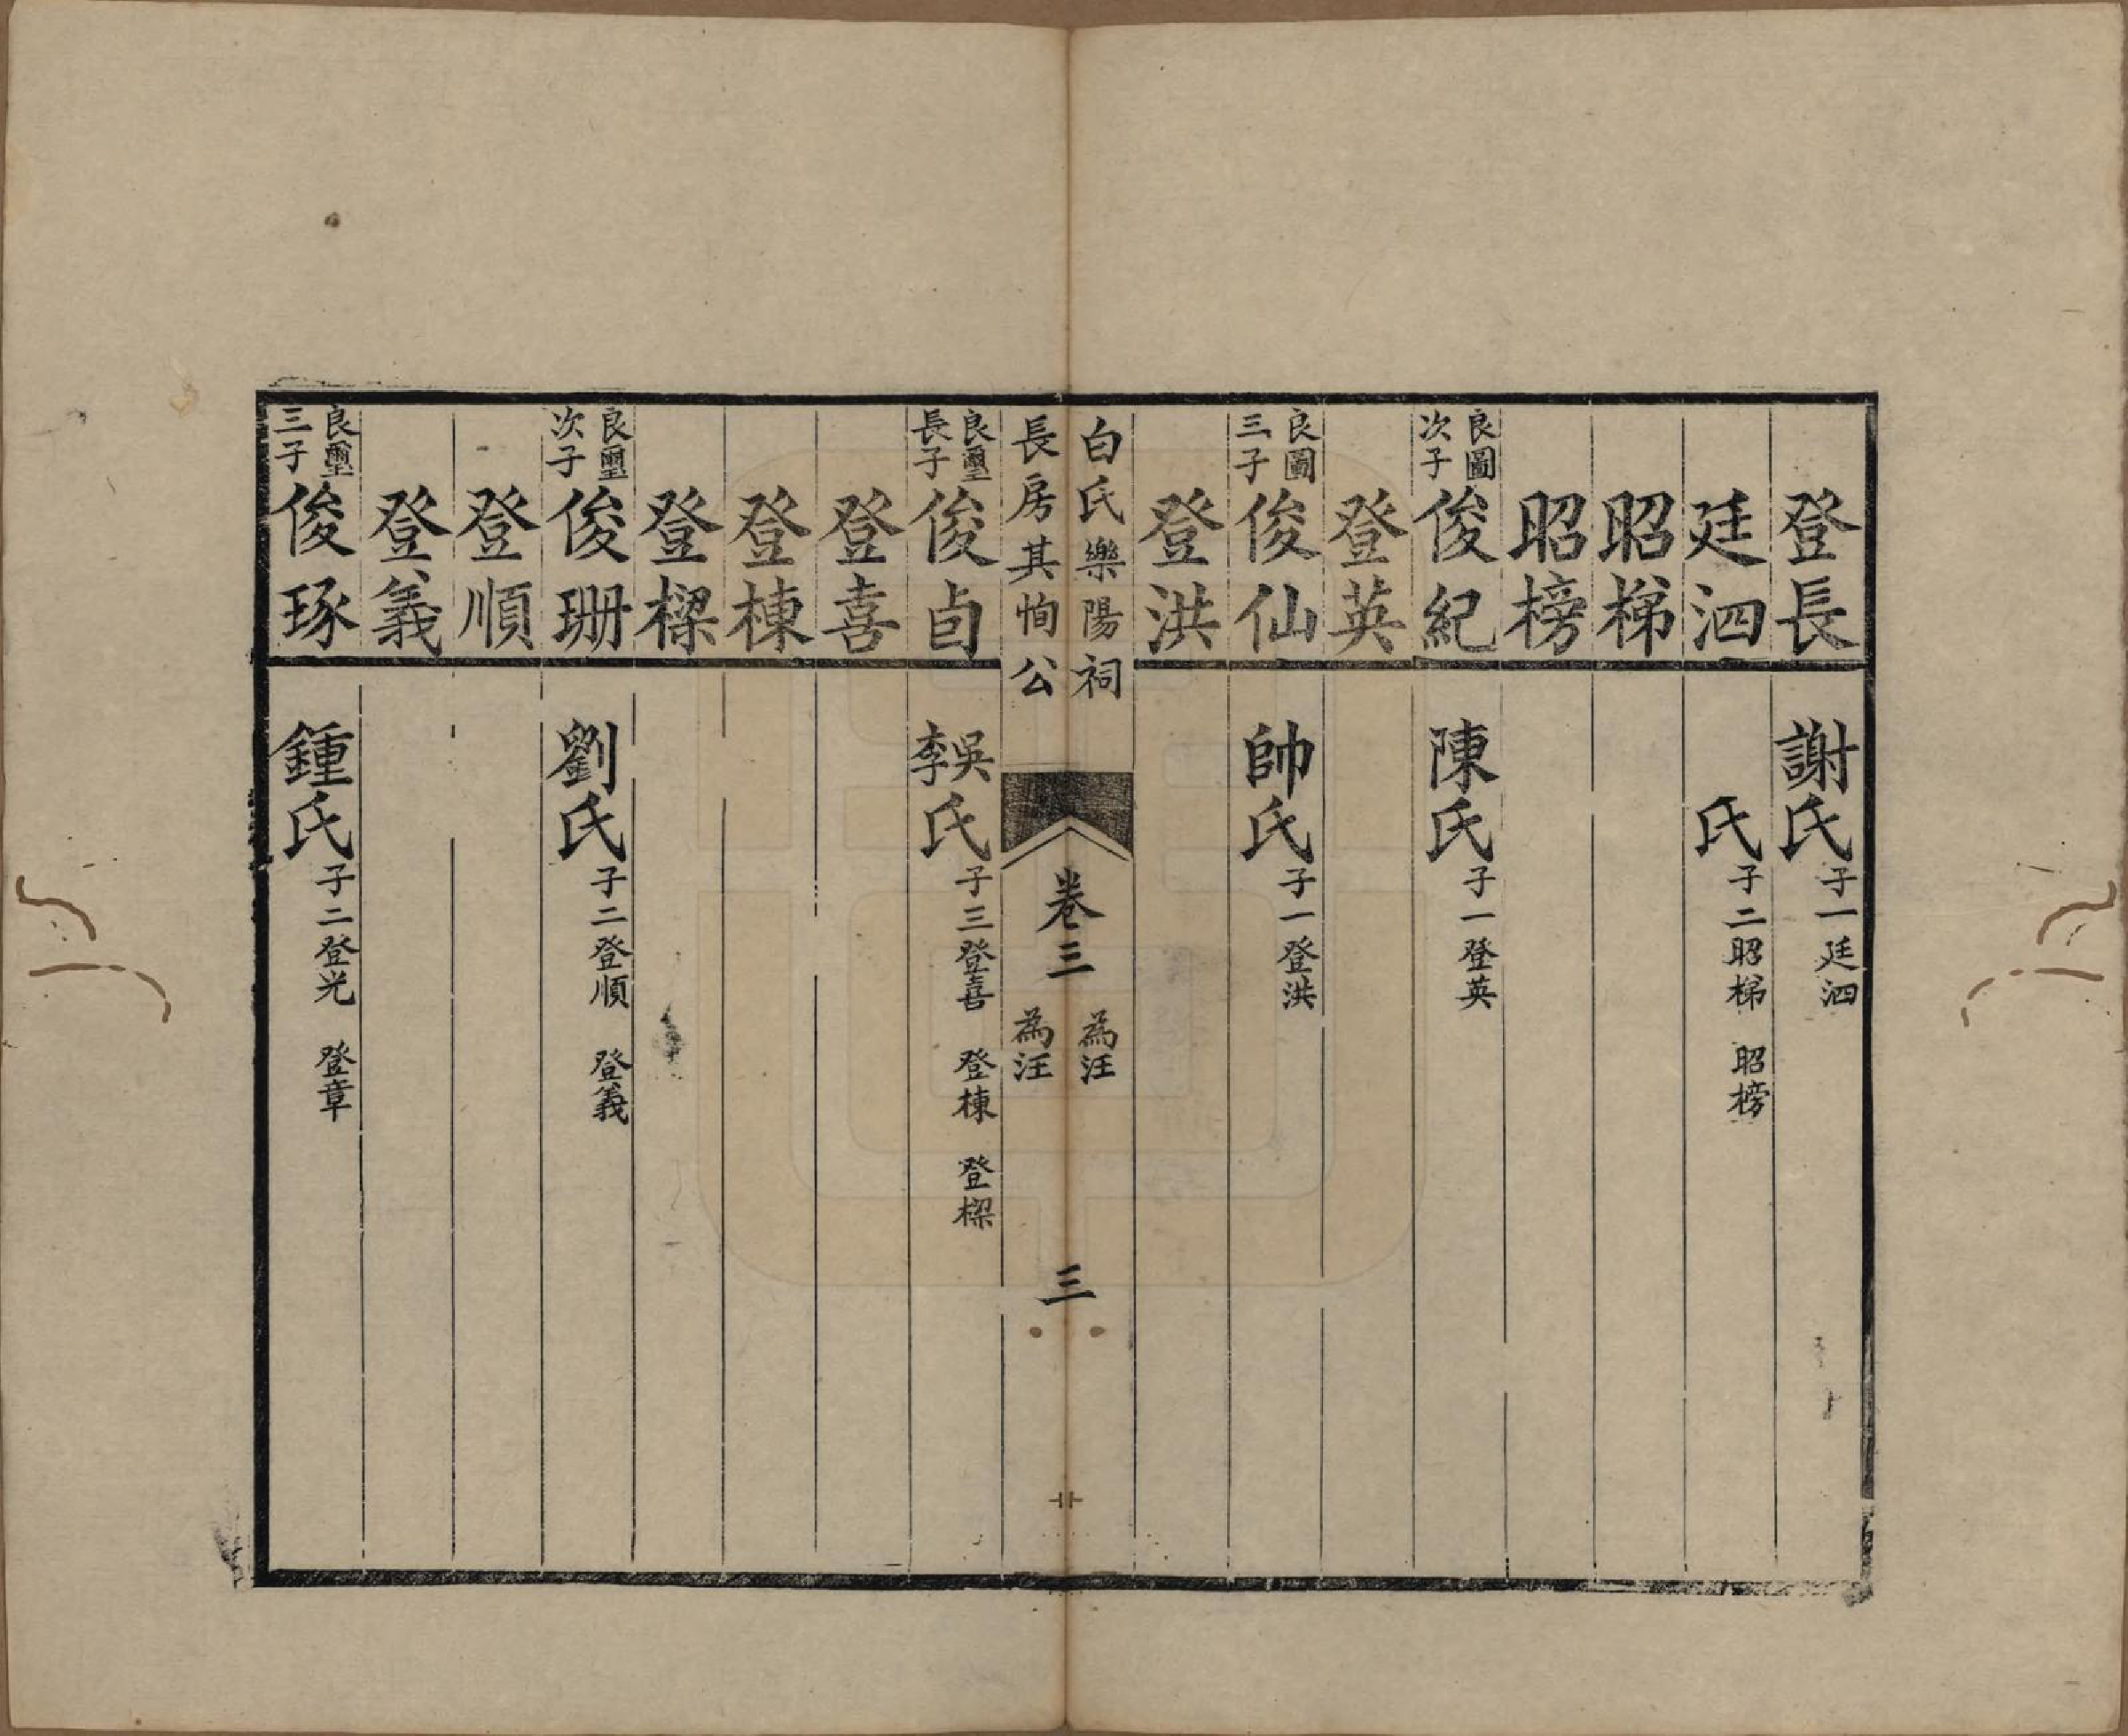 登長 謝氏 子一廷泗
廷泗 氏 子二昭梯 昭榜
昭梯
昭榜
良圖次子 俊紀 陳氏 子一登英
登英
良圖三子 俊仙 帥氏 子一登洪
登洪
白氏樂陽祠 為汪
長房其恂公 為汪
卷三 三
良璽長子 俊卣 吳李氏 子三登喜 登棟 登樑
登喜
登棟
登樑
良璽次子 俊珊 劉氏 子二登順 登義
登順
登義
良璽三子 俊琢 鍾氏 子二登光 登章